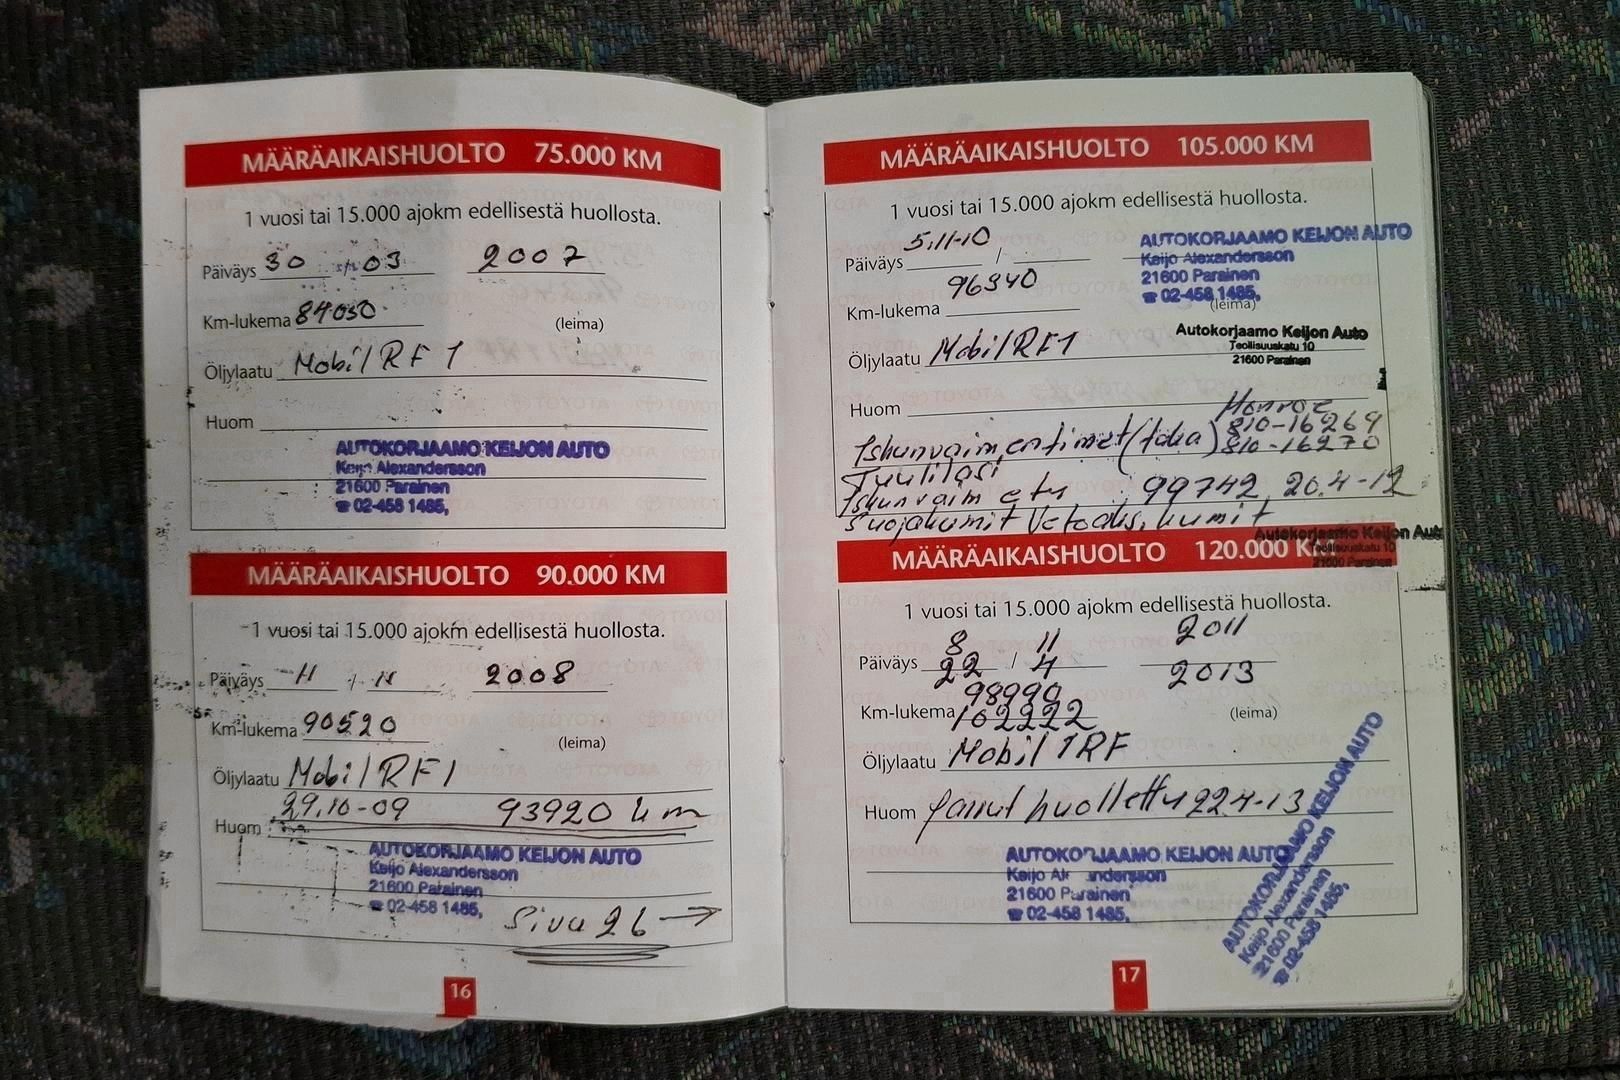 MÄÄRÄAIKAISHUOLTO 75.000 KM
1 vuosi tai 15.000 ajokm edellisestä huollosta.
Päiväys 30 / 03 2007
Km-lukema 84050
(leima)
Öljylaatu Mobil RF 1
Huom
AUTOKORJAAMO KEIJON AUTO
Keijo Alexandersson
21600 Parainen
☎ 02-458 1485,
MÄÄRÄAIKAISHUOLTO 90.000 KM
1 vuosi tai 15.000 ajokm edellisestä huollosta.
Päiväys 11 / 11 2008
Km-lukema 90520
(leima)
Öljylaatu Mobil RF1
29.10-09 93920 km
Huom
AUTOKORJAAMO KEIJON AUTO
Keijo Alexandersson
21600 Parainen
☎ 02-458 1485,
Sivu 26 →
16
MÄÄRÄAIKAISHUOLTO 105.000 KM
1 vuosi tai 15.000 ajokm edellisestä huollosta.
Päiväys 5.11-10 /
AUTOKORJAAMO KEIJON AUTO
Keijo Alexandersson
21600 Parainen
☎ 02-458 1485,
Km-lukema 96340
(leima)
Autokorjaamo Keijon Auto
Teollisuuskatu 10
21600 Parainen
Öljylaatu Mobil RF1
Huom
Monroe
Iskunvaimentimet (taka) 810-16269
810-16270
Tuulilasi
Iskunvaim etu 99742 20.4-12
Suojakumit Vetoaks. kumit
Autokorjaamo Keijon Auto
Teollisuuskatu 10
21600 Parainen
MÄÄRÄAIKAISHUOLTO 120.000 KM
1 vuosi tai 15.000 ajokm edellisestä huollosta.
8 11 2011
Päiväys 22 / 4 2013
98990
Km-lukema 102222
(leima)
Öljylaatu Mobil 1RF
Huom Jarrut huollettu 22.4-13
AUTOKORJAAMO KEIJON AUTO
Keijo Alexandersson
21600 Parainen
☎ 02-458 1485,
AUTOKORJAAMO KEIJON AUTO
Keijo Alexandersson
21600 Parainen
☎ 02-458 1485,
17